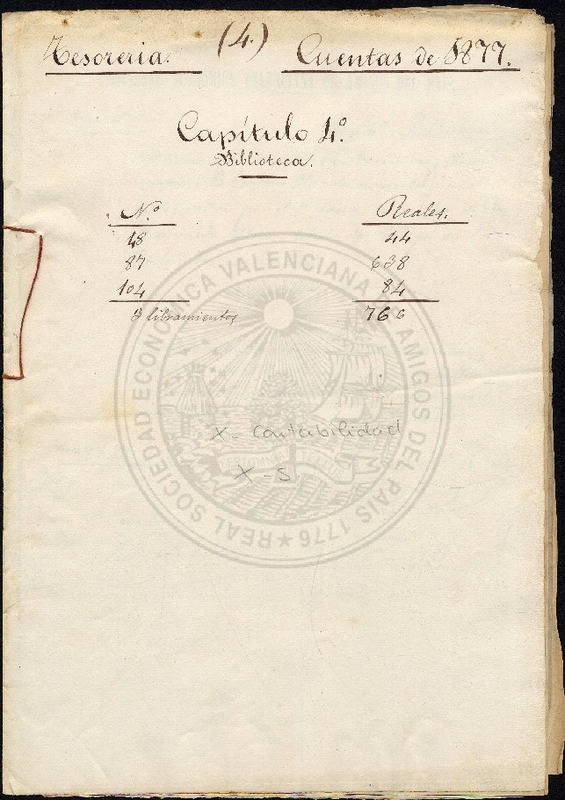 Tesoreria. (4.) Cuentas de 1877.
Capítulo 4.º
Biblioteca.
N.º Reales.
48 44
87 638
104 84
3 libramientos 766
X- Contabilidad
X-S
REAL SOCIEDAD ECONOMICA VALENCIANA DE AMIGOS DEL PAIS 1776 ★